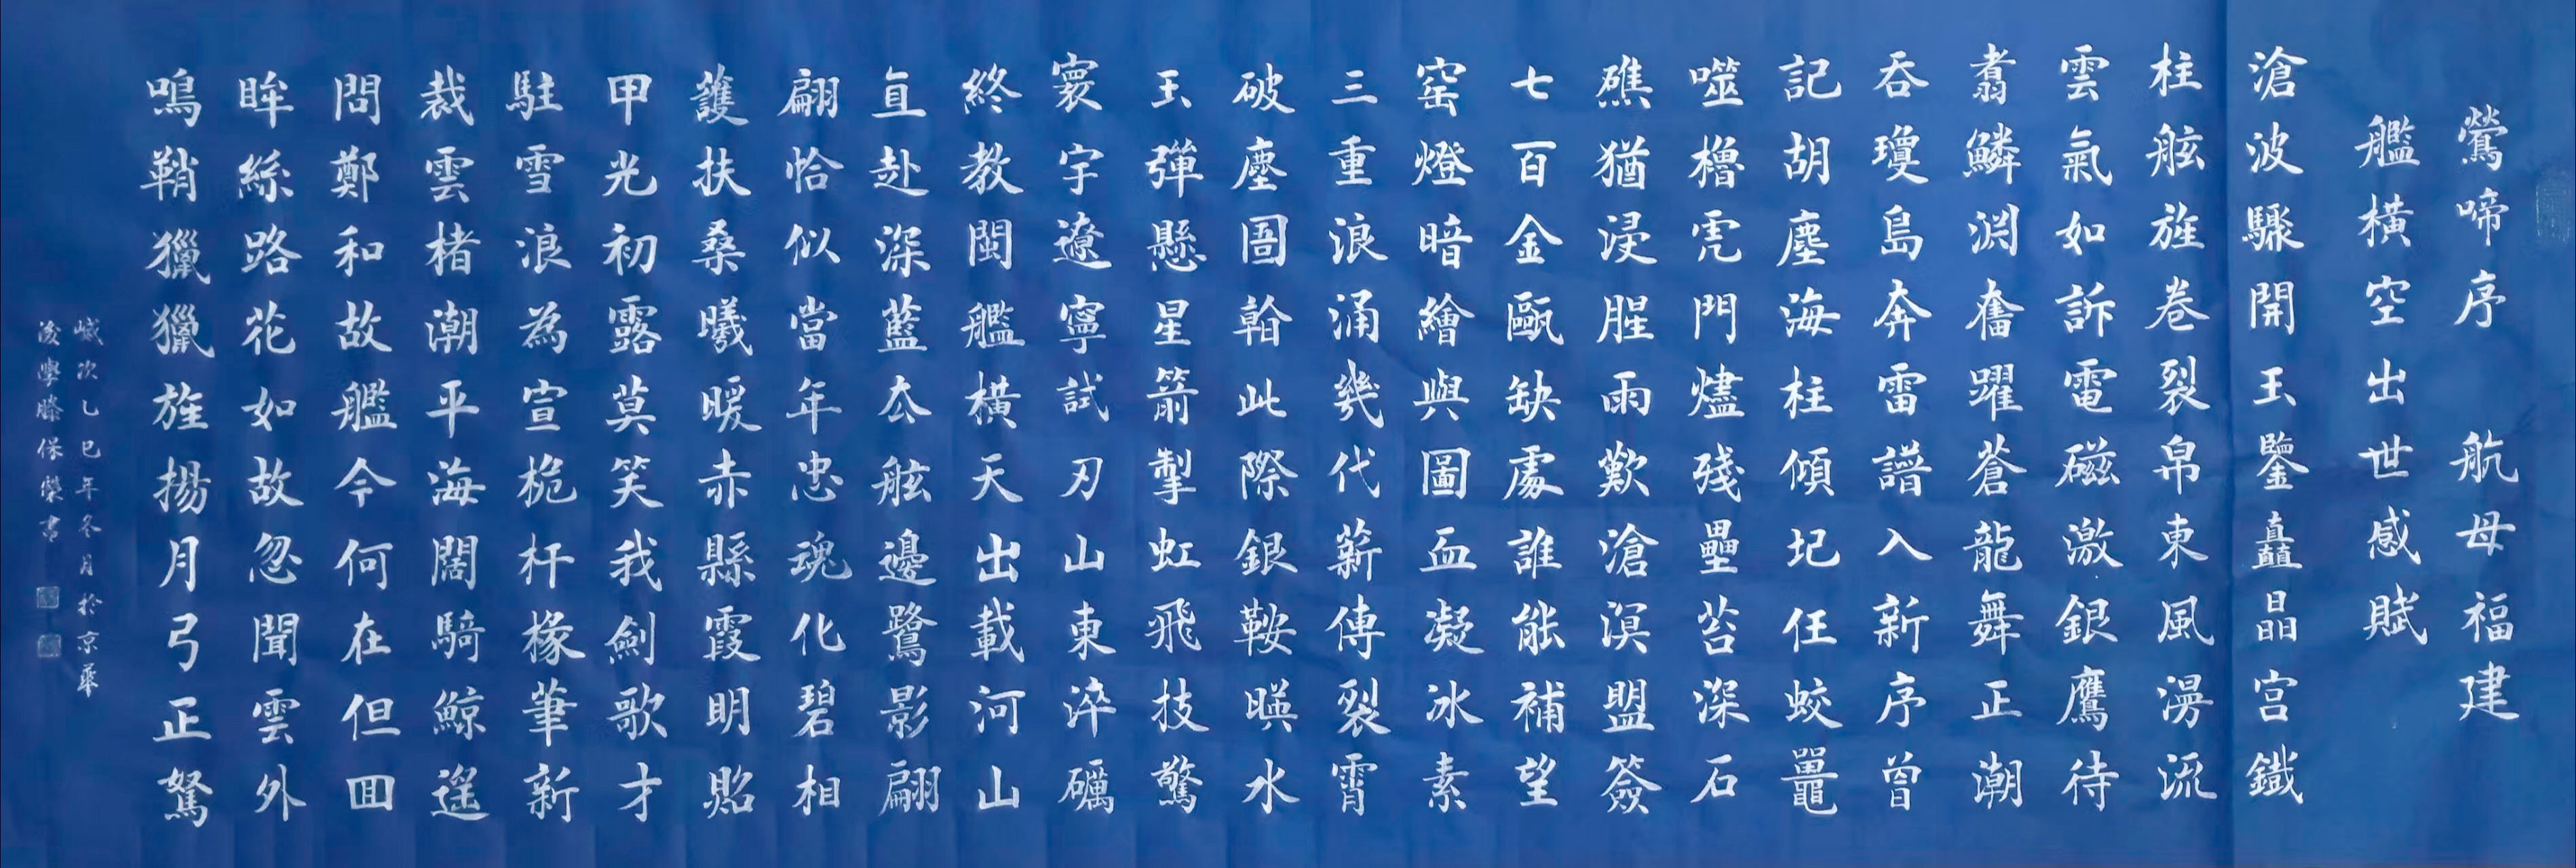 鶯啼序　航母福建
艦橫空出世感賦
滄波驟開玉鑒矗晶宮鐵
柱舷旌卷裂帛東風漫流
雲氣如訴電磁激銀鷹待
翥鱗淵奮躍蒼龍舞正潮
吞瓊島奔雷譜入新序曾
記胡塵海柱傾圮任蛟鼉
噬櫓虎門燼殘壘苔深石
礁猶浸腥雨歎滄溟盟簽
七百金甌缺處誰能補望
窑燈暗繪與圖血凝冰素
三重浪涌幾代薪傳裂霄
破塵圄斡此際銀鞍映水
玉彈懸星箭掣虹飛技驚
寰宇遼寧試刃山東淬礪
終教閩艦橫天出載河山
直赴深藍去舷邊鷺影翩
翩恰似當年忠魂化碧相
護扶桑曦暖赤縣霞明貺
甲光初露莫笑我劍歌才
駐雪浪為宣桅杆椽筆新
裁雲楮潮平海闊騎鯨遥
問鄭和故艦今何在但回
眸絲路花如故忽聞雲外
鳴鞘獵獵旌揚月弓正駑
歲次乙巳年冬月於京華
後學滕保榮書